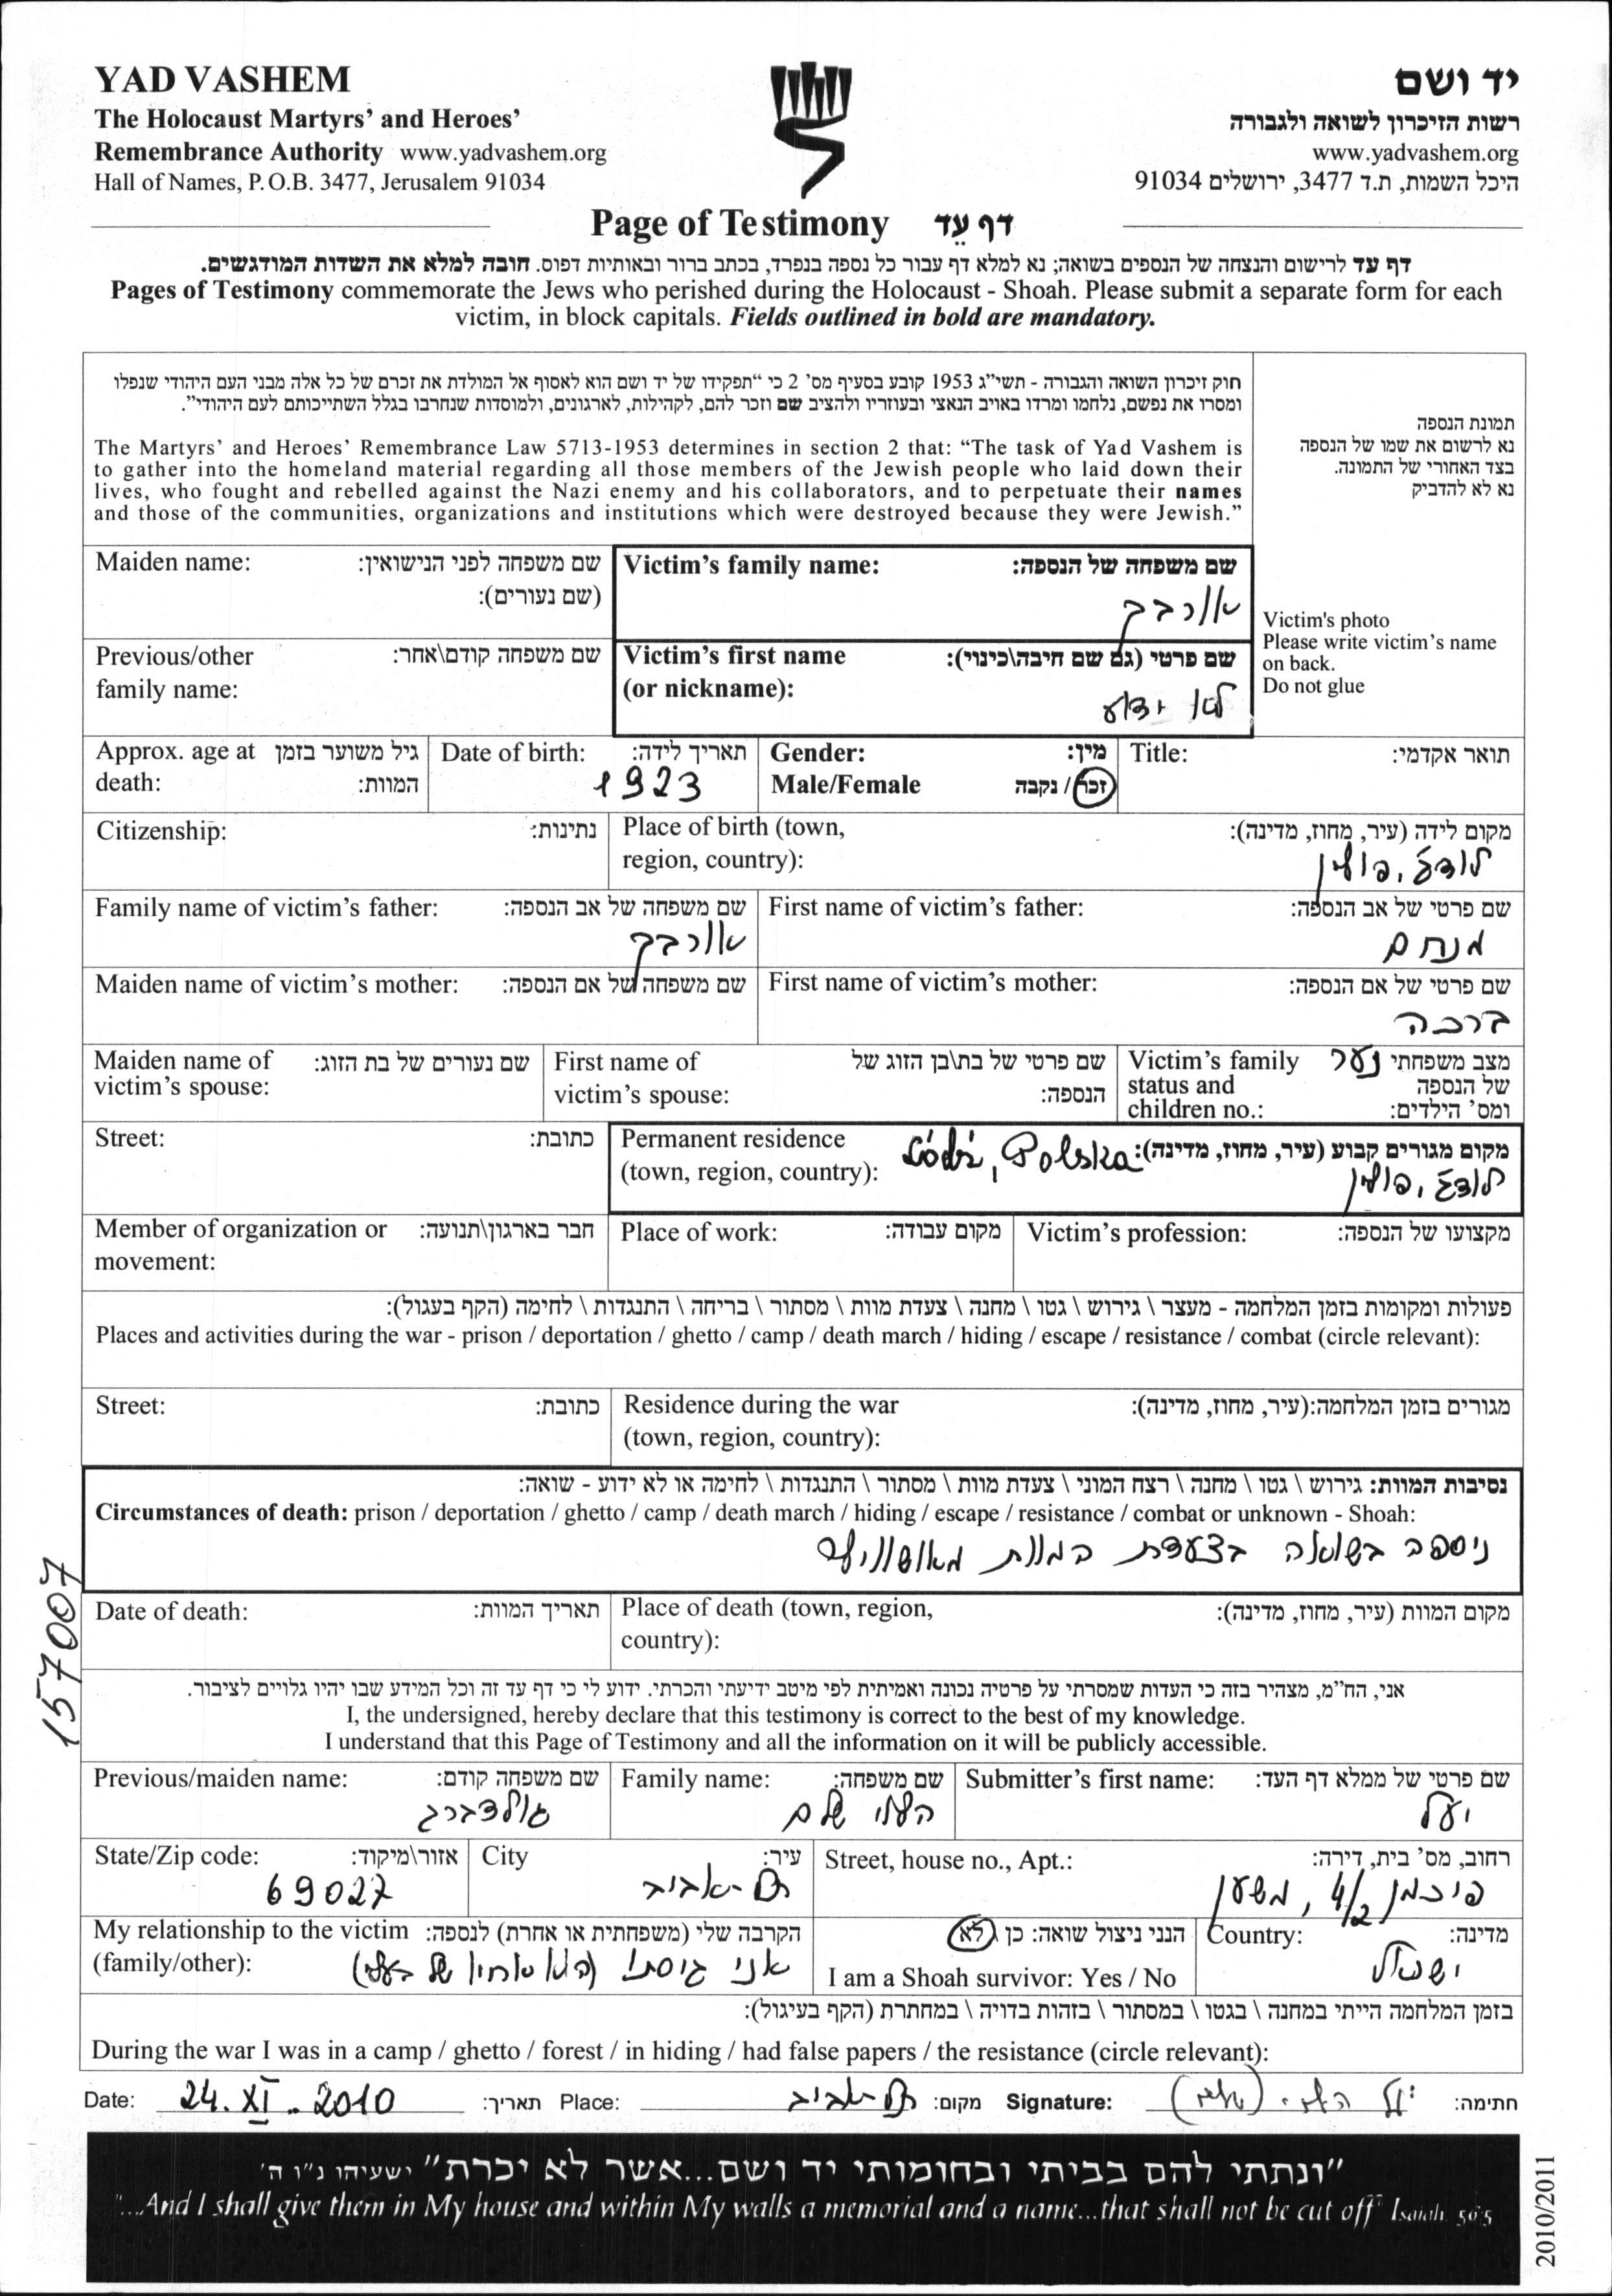 YAD VASHEM
The Holocaust Martyrs' and Heroes'
Remembrance Authority www.yadvashem.org
Hall of Names, P.O.B. 3477, Jerusalem 91034
יד ושם
רשות הזיכרון לשואה ולגבורה
www.yadvashem.org
היכל השמות, ת.ד 3477, ירושלים 91034
Page of Testimony דף עֵד
דף עד לרישום והנצחה של הנספים בשואה; נא למלא דף עבור כל נספה בנפרד, בכתב ברור ובאותיות דפוס. חובה למלא את השדות המודגשים.
Pages of Testimony commemorate the Jews who perished during the Holocaust - Shoah. Please submit a separate form for each
victim, in block capitals. Fields outlined in bold are mandatory.
חוק זיכרון השואה והגבורה - תשי"ג 1953 קובע בסעיף מס' 2 כי "תפקידו של יד ושם הוא לאסוף אל המולדת את זכרם של כל אלה מבני העם היהודי שנפלו
ומסרו את נפשם, נלחמו ומרדו באויב הנאצי ובעוזריו ולהציב שם וזכר להם, לקהילות, לארגונים, ולמוסדות שנחרבו בגלל השתייכותם לעם היהודי".
The Martyrs' and Heroes' Remembrance Law 5713-1953 determines in section 2 that: "The task of Yad Vashem is
to gather into the homeland material regarding all those members of the Jewish people who laid down their
lives, who fought and rebelled against the Nazi enemy and his collaborators, and to perpetuate their names
and those of the communities, organizations and institutions which were destroyed because they were Jewish."
תמונת הנספה
נא לרשום את שמו של הנספה
בצד האחורי של התמונה.
נא לא להדביק
Victim's photo
Please write victim's name
on back.
Do not glue
Maiden name: שם משפחה לפני הנישואין:
(שם נעורים):
Victim's family name: שם משפחה של הנספה:
אורבך
Previous/other שם משפחה קודם\אחר:
family name:
Victim's first name שם פרטי (גם שם חיבה\כינוי):
(or nickname):
לא ידוע
Approx. age at גיל משוער בזמן
death: המוות:
Date of birth: תאריך לידה:
1923
Gender: מין:
Male/Female זכר / נקבה
Title: תואר אקדמי:
Citizenship: נתינות:
Place of birth (town, מקום לידה (עיר, מחוז, מדינה):
region, country):
לודז', פולין
Family name of victim's father: שם משפחה של אב הנספה:
אורבך
First name of victim's father: שם פרטי של אב הנספה:
מנחם
Maiden name of victim's mother: שם משפחה של אם הנספה:
First name of victim's mother: שם פרטי של אם הנספה:
ברכה
Maiden name of שם נעורים של בת הזוג:
victim's spouse:
First name of שם פרטי של בת\בן הזוג של
victim's spouse: הנספה:
Victim's family מצב משפחתי נער
status and של הנספה
children no.: ומס' הילדים:
Street: כתובת:
Permanent residence מקום מגורים קבוע (עיר, מחוז, מדינה):
(town, region, country): Łódź, Polska
לודז', פולין
Member of organization or חבר בארגון\תנועה:
movement:
Place of work: מקום עבודה:
Victim's profession: מקצועו של הנספה:
פעולות ומקומות בזמן המלחמה - מעצר \ גירוש \ גטו \ מחנה \ צעדת מוות \ מסתור \ בריחה \ התנגדות \ לחימה (הקף בעגול):
Places and activities during the war - prison / deportation / ghetto / camp / death march / hiding / escape / resistance / combat (circle relevant):
Street: כתובת:
Residence during the war מגורים בזמן המלחמה:(עיר, מחוז, מדינה):
(town, region, country):
נסיבות המוות: גירוש \ גטו \ מחנה \ רצח המוני \ צעדת מוות \ מסתור \ התנגדות \ לחימה או לא ידוע - שואה:
Circumstances of death: prison / deportation / ghetto / camp / death march / hiding / escape / resistance / combat or unknown - Shoah:
ניספה בשואה בצעדת המוות מאושוויץ
157007
Date of death: תאריך המוות:
Place of death (town, region, מקום המוות (עיר, מחוז, מדינה):
country):
אני, הח"מ, מצהיר בזה כי העדות שמסרתי על פרטיה נכונה ואמיתית לפי מיטב ידיעתי והכרתי. ידוע לי כי דף עד זה וכל המידע שבו יהיו גלויים לציבור.
I, the undersigned, hereby declare that this testimony is correct to the best of my knowledge.
I understand that this Page of Testimony and all the information on it will be publicly accessible.
Previous/maiden name: שם משפחה קודם:
גולדברג
Family name: שם משפחה:
Submitter's first name: שם פרטי של ממלא דף העד:
יעל
State/Zip code: אזור\מיקוד:
69027
City עיר:
תל-אביב
Street, house no., Apt.: רחוב, מס' בית, דירה:
פיכמן 4/2, משען
My relationship to the victim הקרבה שלי (משפחתית או אחרת) לנספה:
(family/other): אני גיסתו (הוא אחיו של בעלי)
הנני ניצול שואה: כן \ לא
I am a Shoah survivor: Yes / No
Country: מדינה:
ישראל
בזמן המלחמה הייתי במחנה \ בגטו \ במסתור \ בזהות בדויה \ במחתרת (הקף בעיגול):
During the war I was in a camp / ghetto / forest / in hiding / had false papers / the resistance (circle relevant):
Date: 24.XI.2010 תאריך: Place: תל-אביב מקום: Signature: חתימה:
"ונתתי להם בביתי ובחומותי יד ושם...אשר לא יכרת" ישעיהו נ"ו ה'
"...And I shall give them in My house and within My walls a memorial and a name...that shall not be cut off" Isaiah 56:5
2010/2011